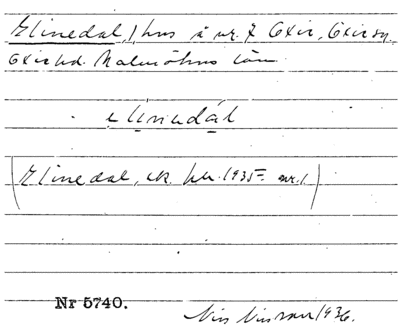 Elinedal, 1 hus å nr. 7 Oxie, Oxie sn.
Oxie hd. Malmöhus län
elinedál
(Elinedal, ek. kb. 1935 nr. 1)
Nr 5740.
Nils Nilsson 1936.